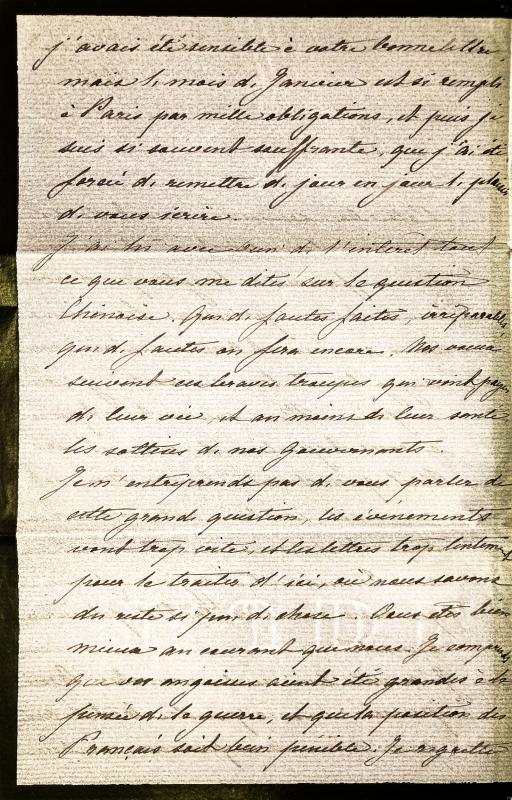 j'avais été sensible à votre bonne lettre
mais le mois de Janvier est si rempli
à Paris par mille obligations, et puis je
suis si souvent souffrante, que j'ai été
forcée de remettre de jour en jour le plaisir
de vous écrire.
J'ai lu avec bien de l'intérêt tout
ce que vous me dites sur la question
Chinoise. Que de fautes faites, irréparables
que de fautes on fera encore. Nos vœux
suivent ces braves troupes qui vont payer
de leur vie, et au moins de leur santé
les sottises de nos Gouvernants.
Je n'entreprends pas de vous parler de
cette grande question, les événements
vont trop vite, et les lettres trop lentement
pour le traiter d'ici, où nous savons
du reste si peu de chose. Vous êtes bien
mieux au courant que nous. Je comprends
que vos angoisses aient été grandes à la
pensée de la guerre, et que la position des
Français soit bien pénible. Je regrette